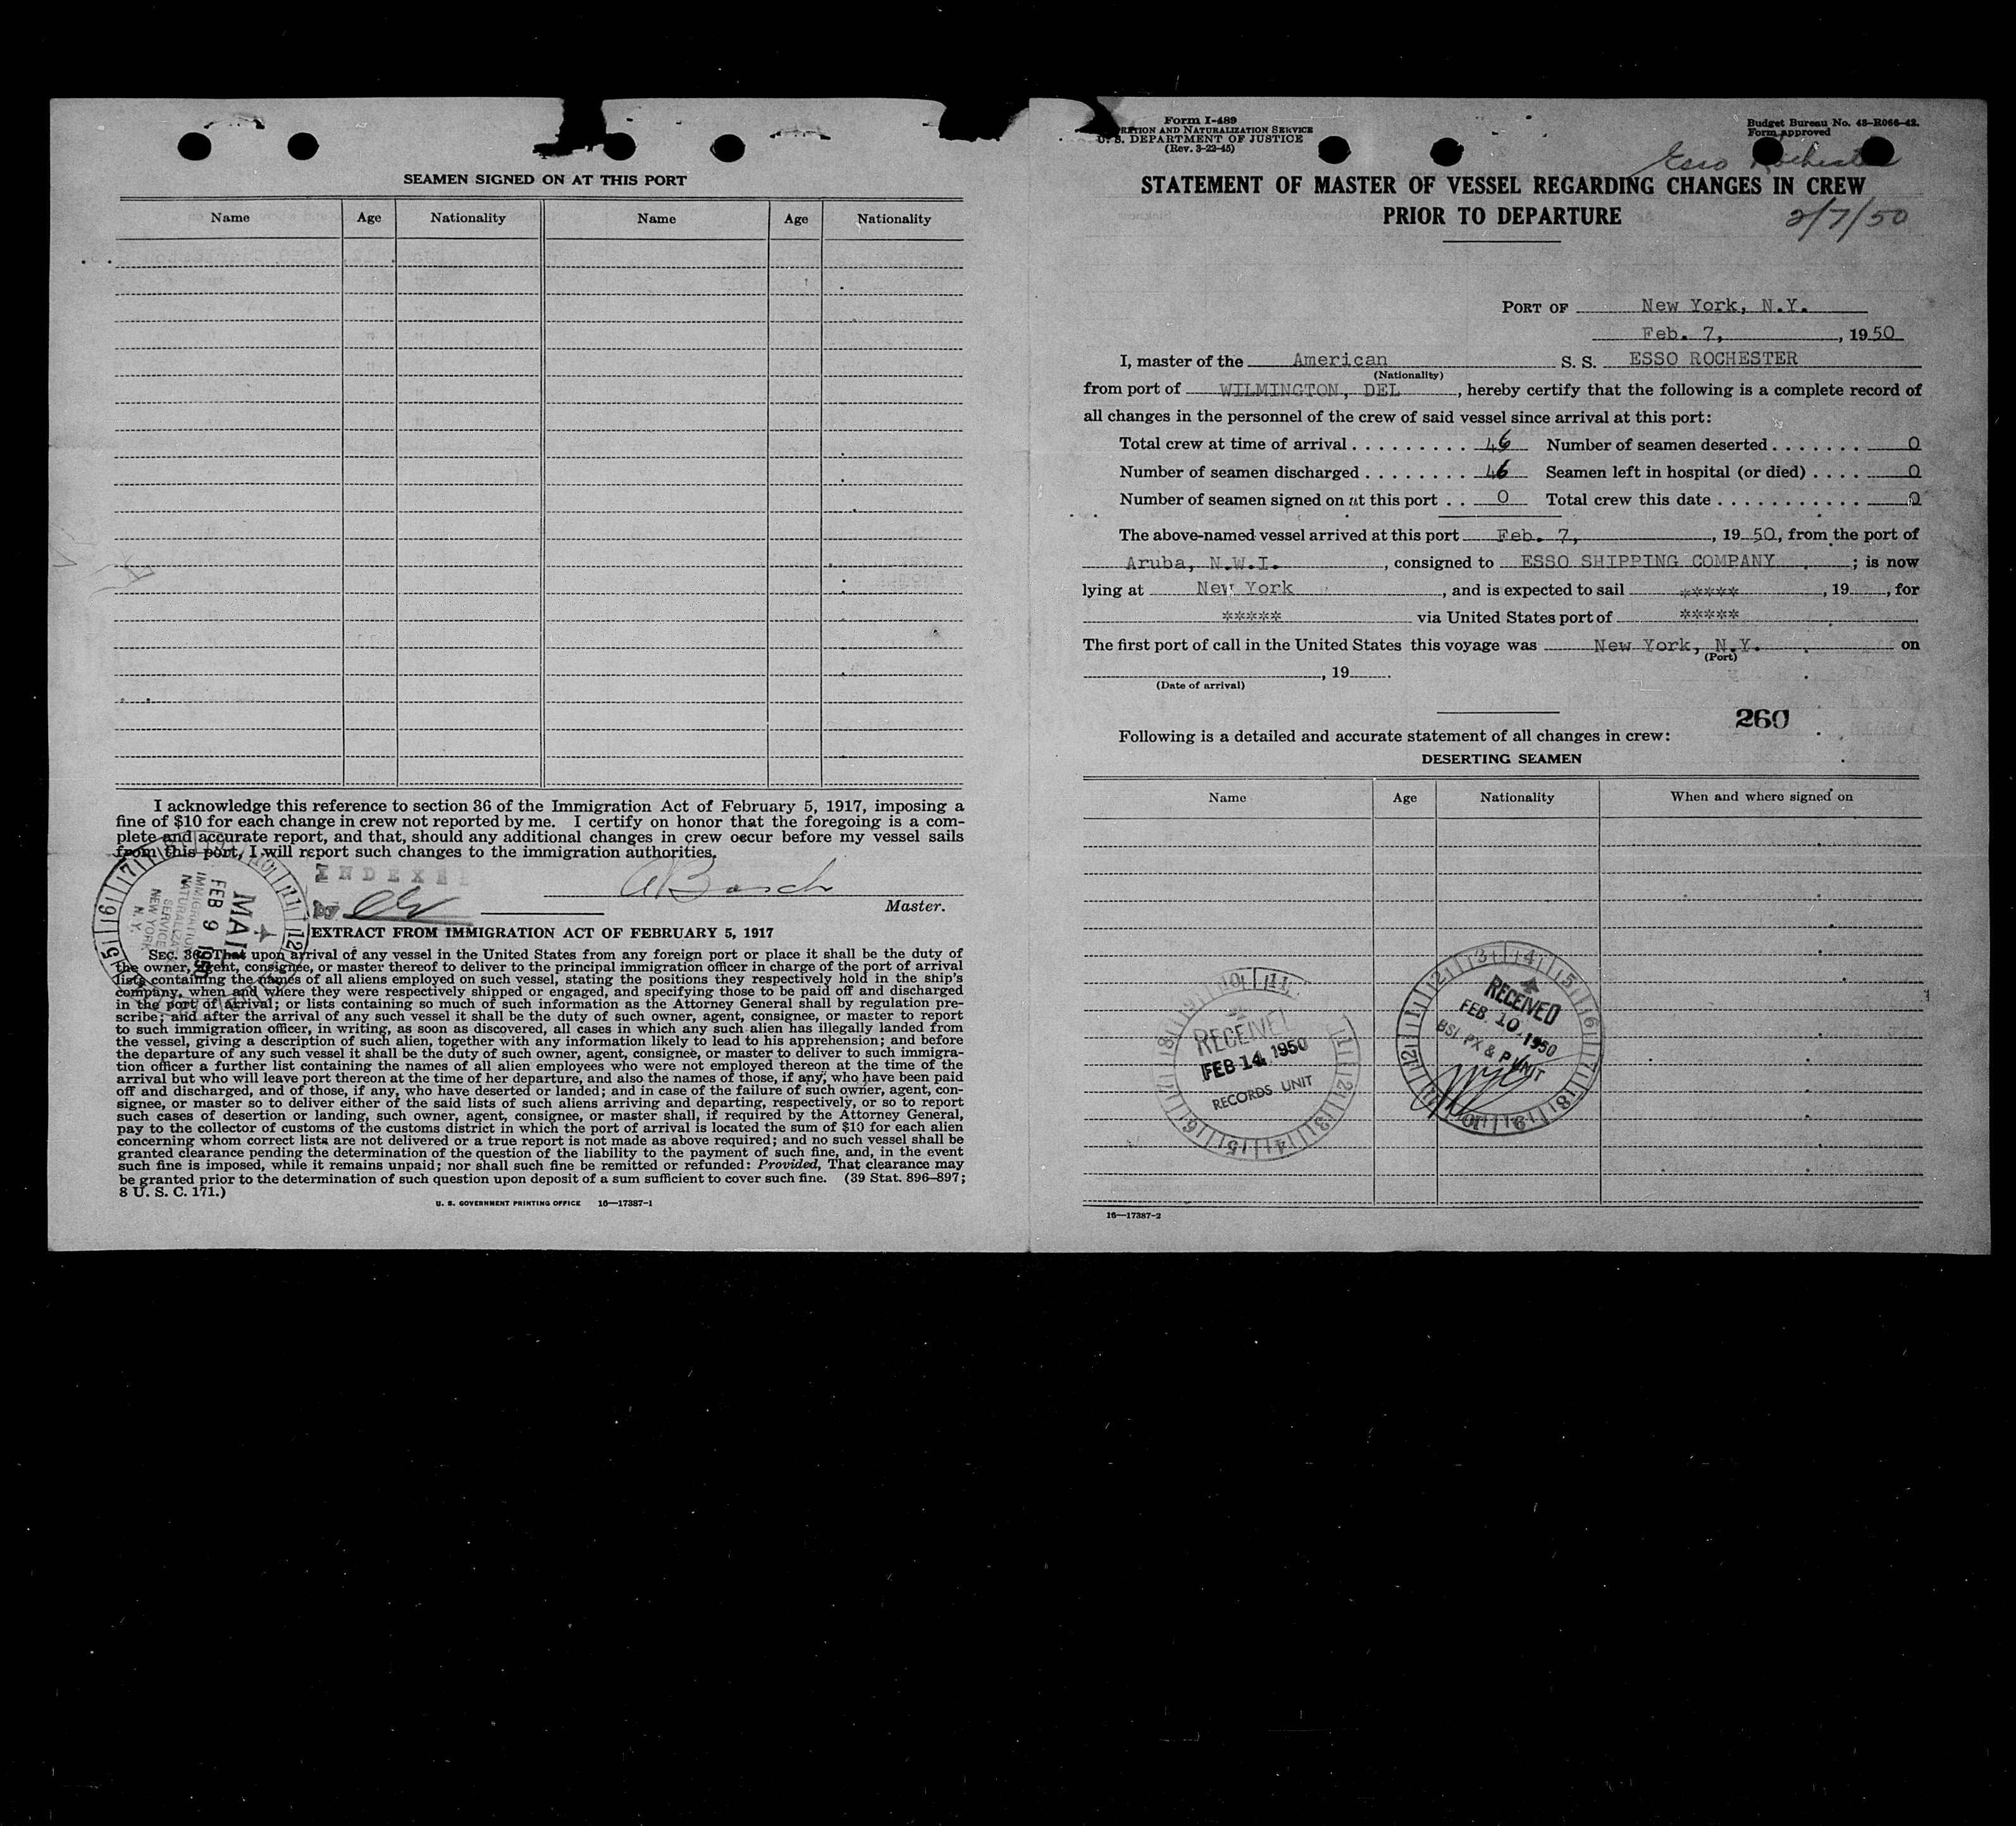 SEAMEN SIGNED ON AT THIS PORT
Name Age Nationality Name Age Nationality
I acknowledge this reference to section 36 of the Immigration Act of February 5, 1917, imposing a
fine of $10 for each change in crew not reported by me. I certify on honor that the foregoing is a com-
plete and accurate report, and that, should any additional changes in crew occur before my vessel sails
from this port, I will report such changes to the immigration authorities.
INDEXE
by
Master.
MAIL
FEB 9 1950
IMMIGRATION
NATURALIZAT
SERVICE
NEW YORK
N. Y.
EXTRACT FROM IMMIGRATION ACT OF FEBRUARY 5, 1917
SEC. 36. That upon arrival of any vessel in the United States from any foreign port or place it shall be the duty of
the owner, agent, consignee, or master thereof to deliver to the principal immigration officer in charge of the port of arrival
lists containing the names of all aliens employed on such vessel, stating the positions they respectively hold in the ship's
company, when and where they were respectively shipped or engaged, and specifying those to be paid off and discharged
in the port of arrival; or lists containing so much of such information as the Attorney General shall by regulation pre-
scribe; and after the arrival of any such vessel it shall be the duty of such owner, agent, consignee, or master to report
to such immigration officer, in writing, as soon as discovered, all cases in which any such alien has illegally landed from
the vessel, giving a description of such alien, together with any information likely to lead to his apprehension; and before
the departure of any such vessel it shall be the duty of such owner, agent, consignee, or master to deliver to such immigra-
tion officer a further list containing the names of all alien employees who were not employed thereon at the time of the
arrival but who will leave port thereon at the time of her departure, and also the names of those, if any, who have been paid
off and discharged, and of those, if any, who have deserted or landed; and in case of the failure of such owner, agent, con-
signee, or master so to deliver either of the said lists of such aliens arriving and departing, respectively, or so to report
such cases of desertion or landing, such owner, agent, consignee, or master shall, if required by the Attorney General,
pay to the collector of customs of the customs district in which the port of arrival is located the sum of $10 for each alien
concerning whom correct lists are not delivered or a true report is not made as above required; and no such vessel shall be
granted clearance pending the determination of the question of the liability to the payment of such fine, and, in the event
such fine is imposed, while it remains unpaid; nor shall such fine be remitted or refunded: Provided, That clearance may
be granted prior to the determination of such question upon deposit of a sum sufficient to cover such fine. (39 Stat. 896–897;
8 U. S. C. 171.)
U. S. GOVERNMENT PRINTING OFFICE 16—17387-1
Form I-489
RATION AND NATURALIZATION SERVICE
U. S. DEPARTMENT OF JUSTICE
(Rev. 3-22-45)
Budget Bureau No. 43-R066-42.
Form approved
Esso Rochester
STATEMENT OF MASTER OF VESSEL REGARDING CHANGES IN CREW
PRIOR TO DEPARTURE
2/7/50
PORT OF New York, N.Y.
Feb. 7, , 1950
I, master of the American S. S. ESSO ROCHESTER
(Nationality)
from port of WILMINGTON, DEL , hereby certify that the following is a complete record of
all changes in the personnel of the crew of said vessel since arrival at this port:
Total crew at time of arrival . . . . . . . . . 46 Number of seamen deserted . . . . . . . 0
Number of seamen discharged . . . . . . . . 46 Seamen left in hospital (or died) . . . . 0
Number of seamen signed on at this port . . 0 Total crew this date . . . . . . . . . . . . 0
The above-named vessel arrived at this port Feb. 7, , 19 50, from the port of
Aruba, N.W.I. , consigned to ESSO SHIPPING COMPANY ; is now
lying at New York , and is expected to sail ***** , 19 , for
***** via United States port of *****
The first port of call in the United States this voyage was New York, N.Y. on
(Port)
, 19 .
(Date of arrival)
260
Following is a detailed and accurate statement of all changes in crew:
DESERTING SEAMEN
Name Age Nationality When and where signed on
RECEIVED
FEB 10 1950
BSI PX & P UNIT
RECEIVED
FEB 14 1950
RECORDS UNIT
16—17387-2